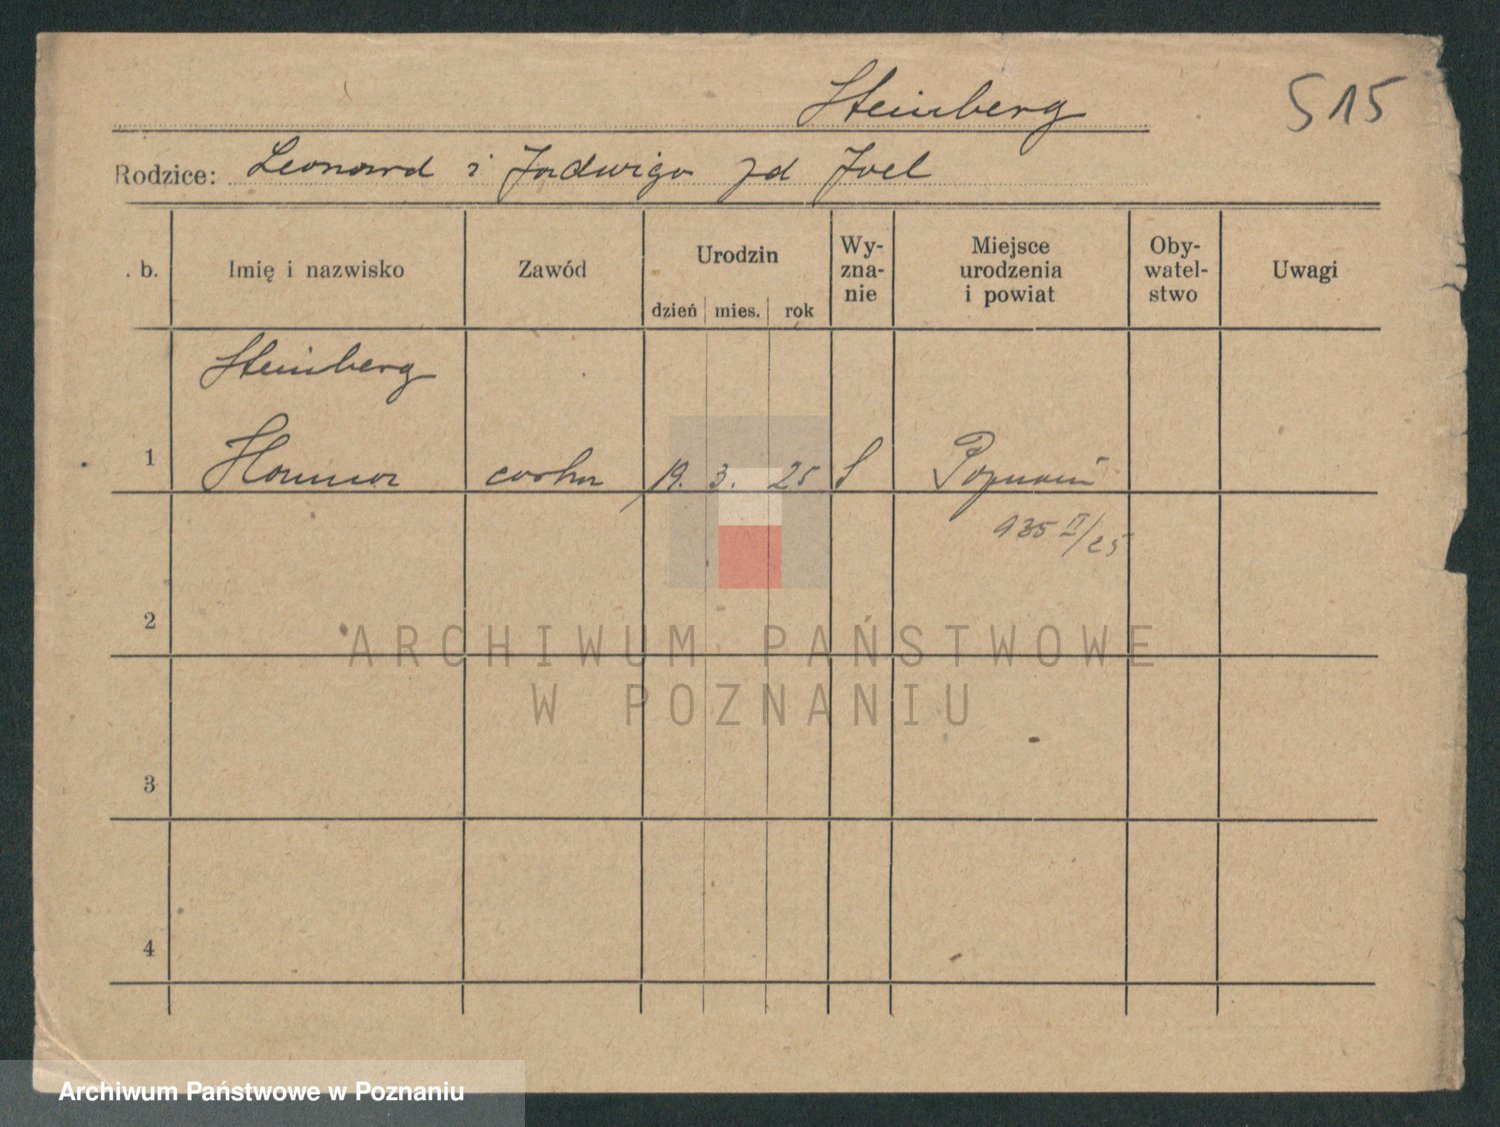 Steinberg
515
Rodzice: Leonard i Jadwiga zd Joel
. b.
Imię i nazwisko
Zawód
Urodzin
dzień mies. rok
Wy-
zna-
nie
Miejsce
urodzenia
i powiat
Oby-
watel-
stwo
Uwagi
Steinberg
1 córka 19. 3. 25 Poznań
935 II/25
2
3
4
ARCHIWUM PAŃSTWOWE
W POZNANIU
Archiwum Państwowe w Poznaniu